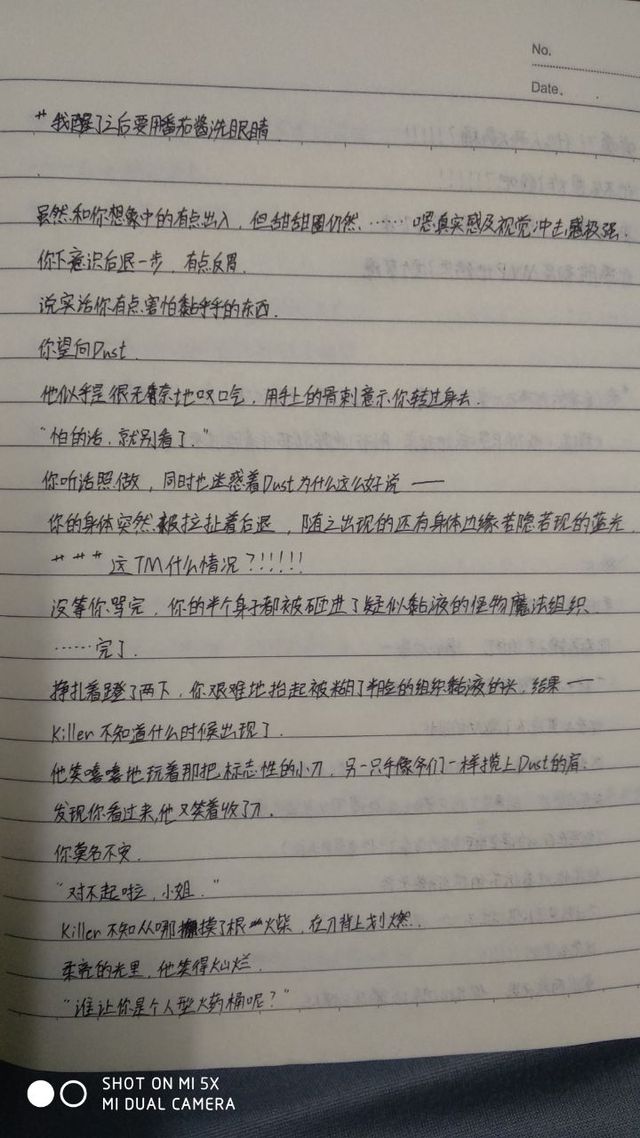 No.
Date.
**我醒了之后要用番茄酱洗眼睛
虽然和你想象中的有点出入，但甜甜圈仍然……嗯真实感及视觉冲击感极强.
你下意识后退一步，有点反胃.
说实话你有点害怕黏乎乎的东西.
你望向Dust.
他似乎是很无奈地叹口气，用手上的骨刺意示你转过身去.
“怕的话，就别看了.”
你听话照做，同时也迷惑着Dust为什么这么好说——
你的身体突然被拉扯着后退，随之出现的还有身体边缘若隐若现的蓝光.
****这TM什么情况？!!!!!
没等你骂完，你的半个身子都被砸进了疑似黏液的怪物魔法组织、
……完了.
挣扎着蹬了两下，你艰难地抬起被糊了半脸的组织黏液的头，结果——
Killer不知道什么时候出现了.
他笑嘻嘻地玩着那把标志性的小刀，另一只手像爷们一样揽上Dust的肩.
发现你看过来,他又笑着收了刀.
你莫名不安.
“对不起啦，小姐.”
Killer不知从哪摸了根火柴，在刀背上划燃.
柔亮的光里，他笑得灿烂.
“谁让你是个人型火药桶呢？”
SHOT ON MI 5X
MI DUAL CAMERA